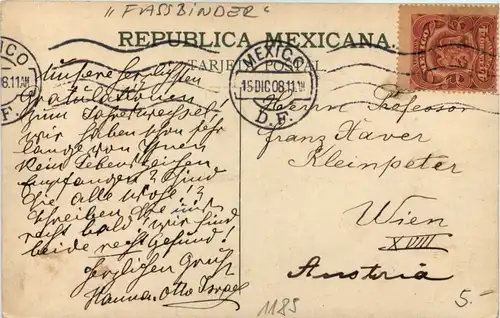 "FASSBINDER"
REPUBLICA MEXICANA.
TARJETA POSTAL
MEXICO
15 DIC 08. 11 AM
D. F.
MEXICO
08. 11 AM
D. F.
MEXICO
4 CENTAVOS
Unsere herzlichsten
Gratulationen
zum Jahreswechsel
wir haben schon sehr
lange von Ihnen
kein Lebenszeichen
empfangen? Sind
Sie alle wohl!?
Schreiben Sie nur
recht bald wir sind
beide recht gesund!
Herzlichen Gruß
Hanna. Otto Israel
Herrn Professor
Franz Xaver
Kleinpeter
Wien
XVIII
Austria
1185
5.-